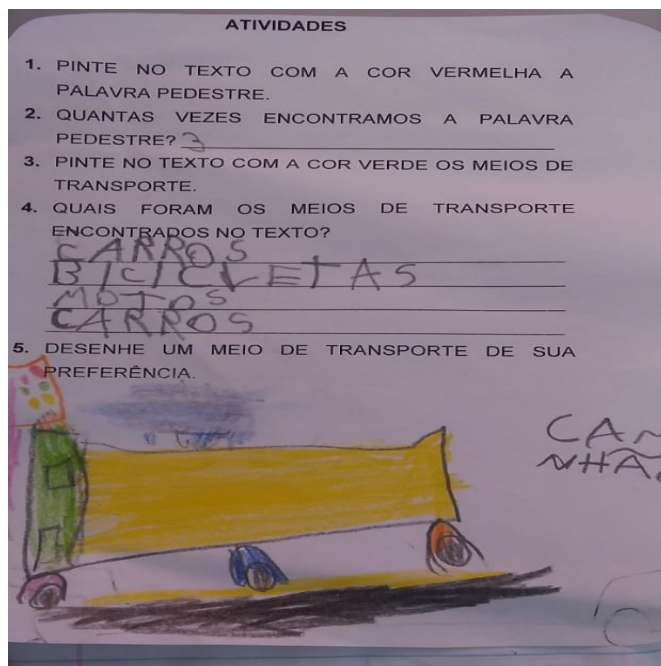 ATIVIDADES
1. PINTE NO TEXTO COM A COR VERMELHA A
PALAVRA PEDESTRE.
2. QUANTAS VEZES ENCONTRAMOS A PALAVRA
PEDESTRE? 3
3. PINTE NO TEXTO COM A COR VERDE OS MEIOS DE
TRANSPORTE.
4. QUAIS FORAM OS MEIOS DE TRANSPORTE
ENCONTRADOS NO TEXTO?
CARROS
BICICLETAS
MOTOS
CARROS
5. DESENHE UM MEIO DE TRANSPORTE DE SUA
PREFERÊNCIA.
CAM
NHÃ